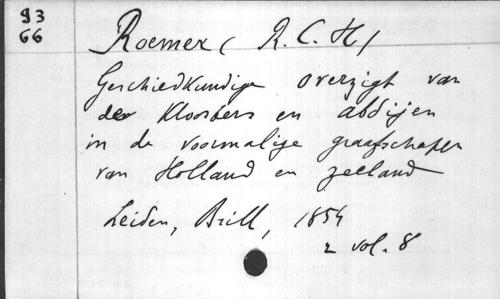 93
66
Roemer ( R. C. H )
Geschiedkundige overzigt van
der kloosters en abdijen
in de voormalige graafschappen
van Holland en Zeeland
Leiden, Brill, 1854
2 vol. 8